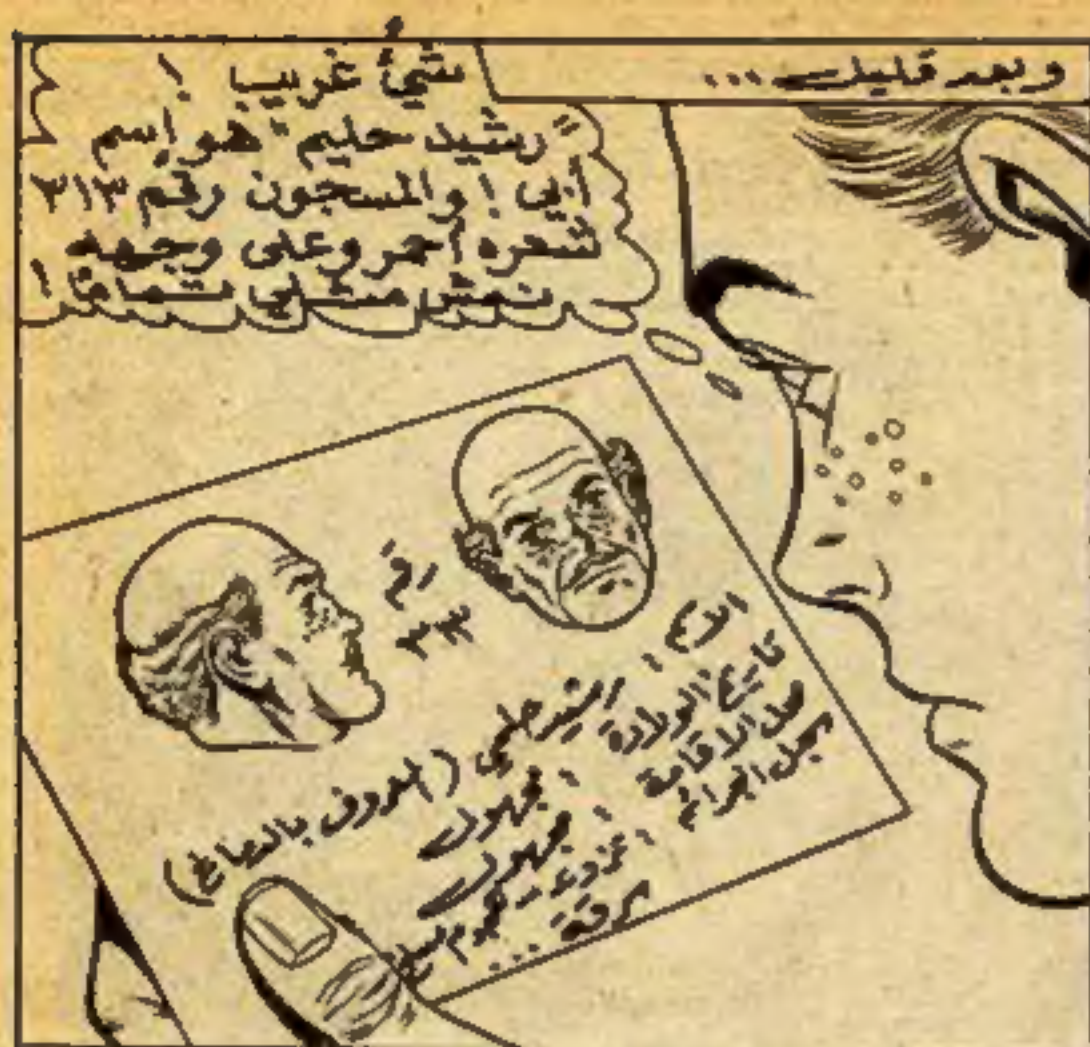 وبعد قليل...
شيئ غريب !
"رشيد حليم" هو إسم
أبي ! والمسجون رقم ٣١٣
شعره أحمر وعلى وجهه
نمش مثلي تماماً !
رقم
٣١٣
الاسم : رشيد حليم (المعروف بالدماغ)
تاريخ الولادة : مجهول
محل الاقامة : مجهول
سجل الجرائم : تزوير - هجوم مسلح
سرقة ...